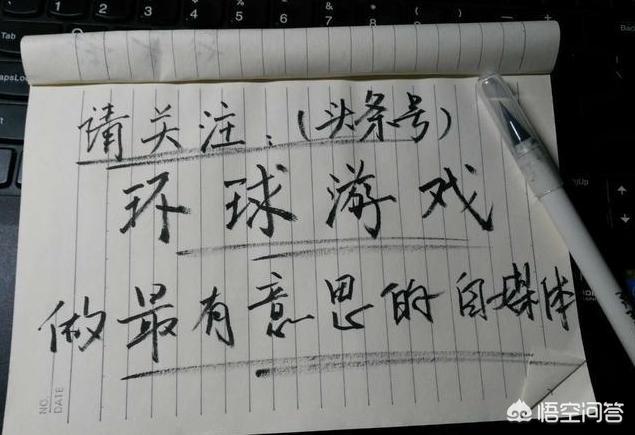 请关注：（头条号）
环球游戏
做最有意思的自媒体
NO.
DATE
Tab
CapsLo
悟空问答